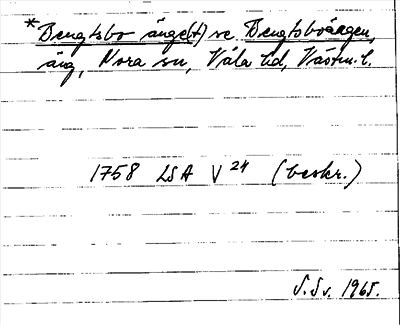 *Bengtsbo änge(t) se Bengtsboängen,
äng, Nora sn, Våla hd, Västm. l.
1758 LSA V 24 (beskr.)
S. Sv. 1965.